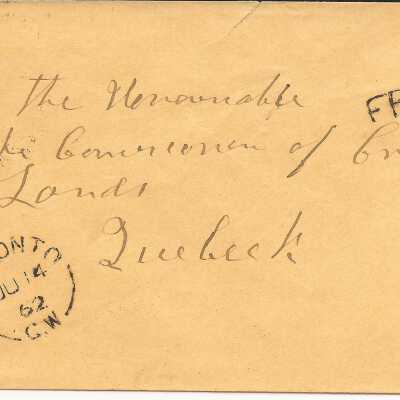 The Honourable
FR
the Commissioner of Cr
Lands
Quebeck
ONTO
JU 14
62
C.W